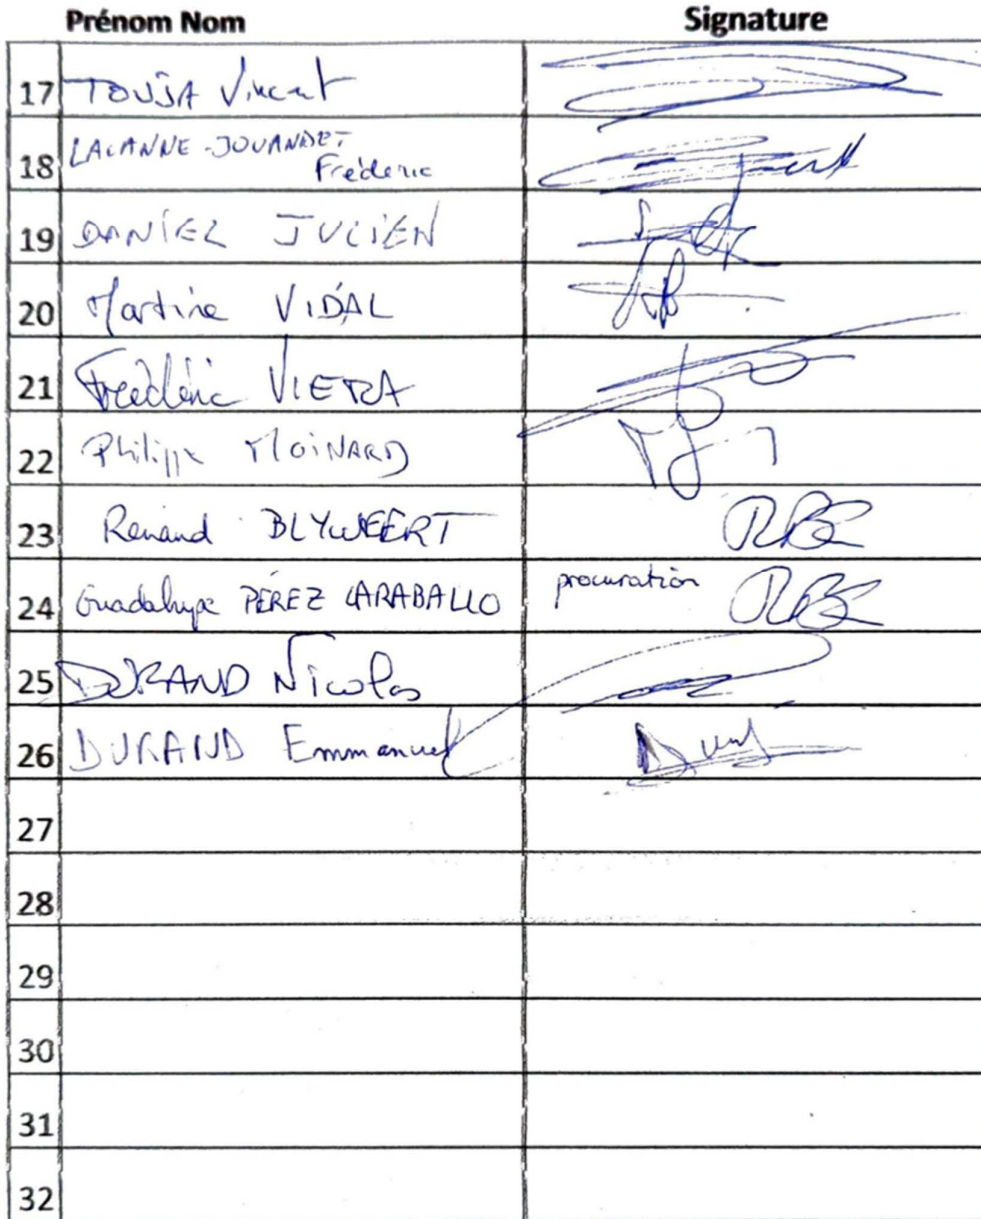 Prénom Nom Signature
17 TOUJA Vincent
18 LACANNE-JOUANDET
Frédéric
19 DANIEL JULIEN
20 Martine VIDAL
21 Frédéric VIEIRA
22 Philippe MOINARD
23 Renaud BLYWEERT RBE
24 Guadalupe PÉREZ CARABALLO procuration RBE
25 DURAND Nicolas
26 DURAND Emmanuel
27
28
29
30
31
32